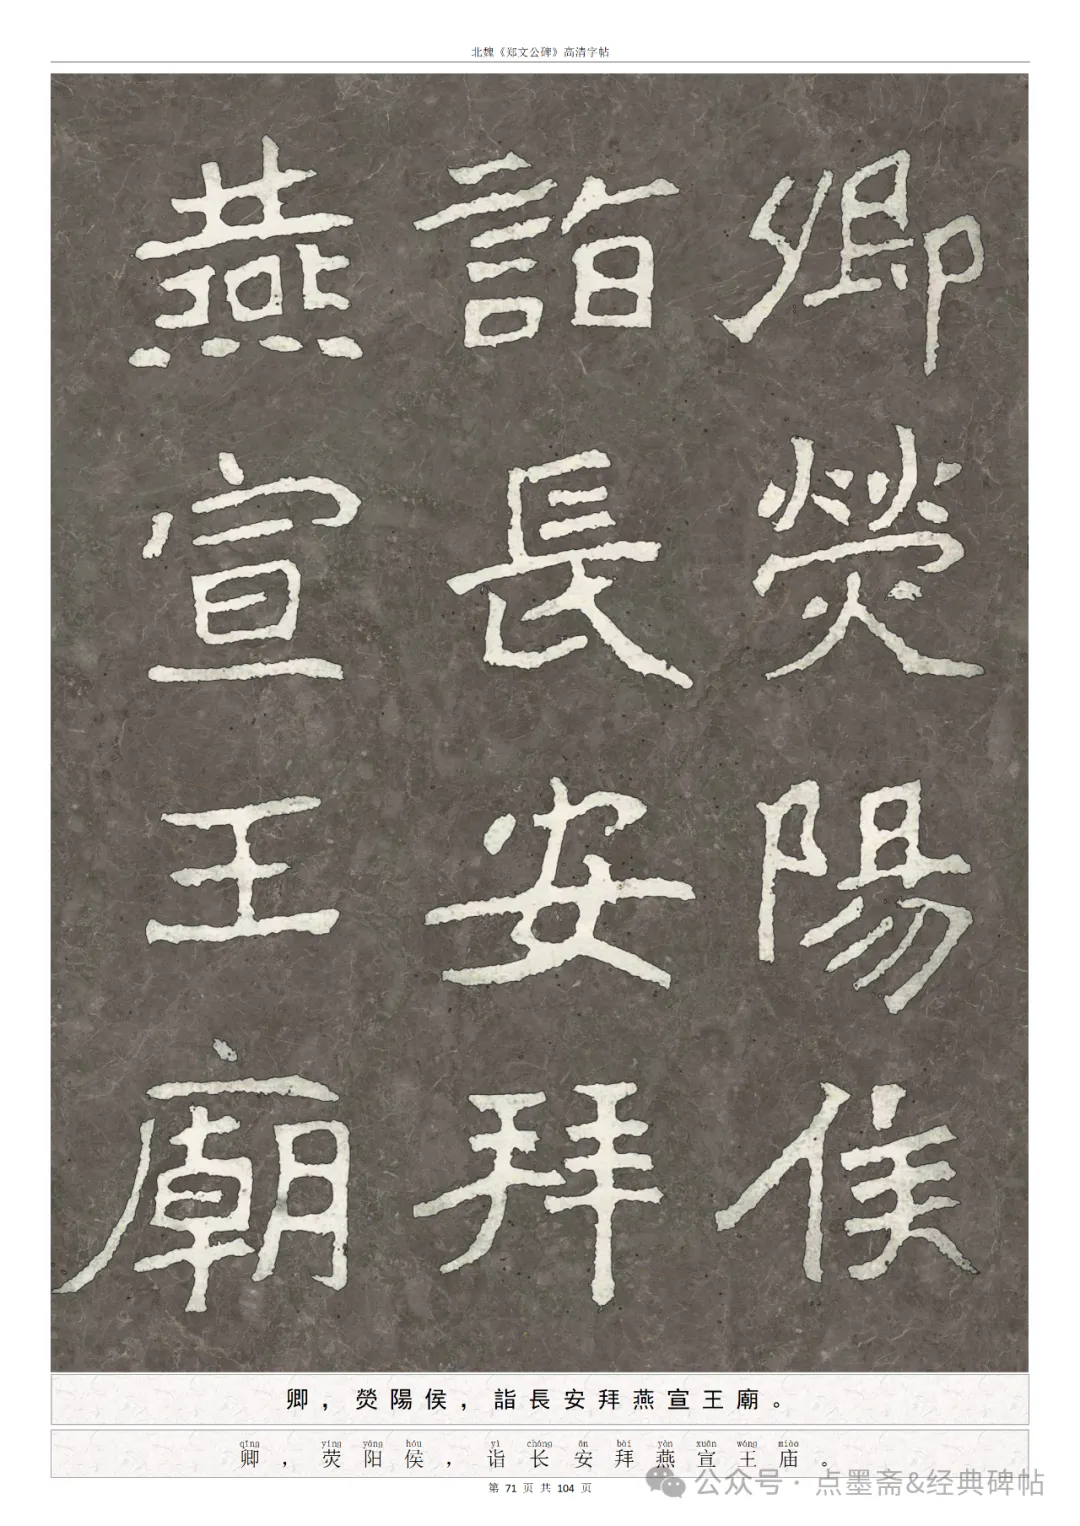 北魏《郑文公碑》高清字帖
卿熒陽侯
詣長安拜
燕宣王廟
卿，熒陽侯，詣長安拜燕宣王廟。
qīng yíng yáng hóu yì cháng ān bài yàn xuān wáng miào
卿，荧阳侯，诣长安拜燕宣王庙。
第 71 页 共 104 页
公众号·点墨斋&经典碑帖